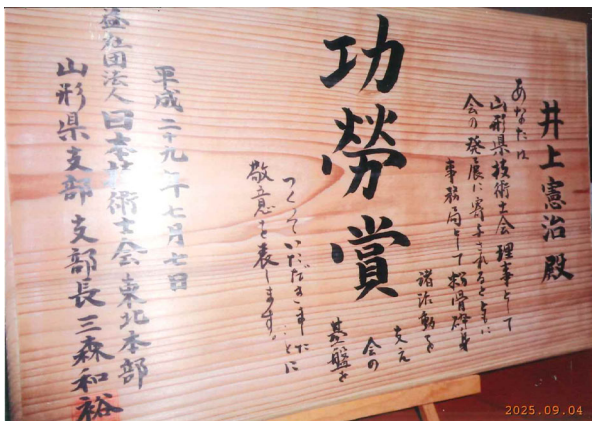 功勞賞
井上憲治殿
あなたは
山形県技術士会理事として
会の発展に寄与されるとともに
事務局として粉骨砕身
諸活動を
支え
会の
基盤を
つくっていただきました
ことに
敬意を表します。
平成二十九年七月七日
益社団法人日本技術士会東北本部
山形県支部支部長三森和裕
2025.09.04